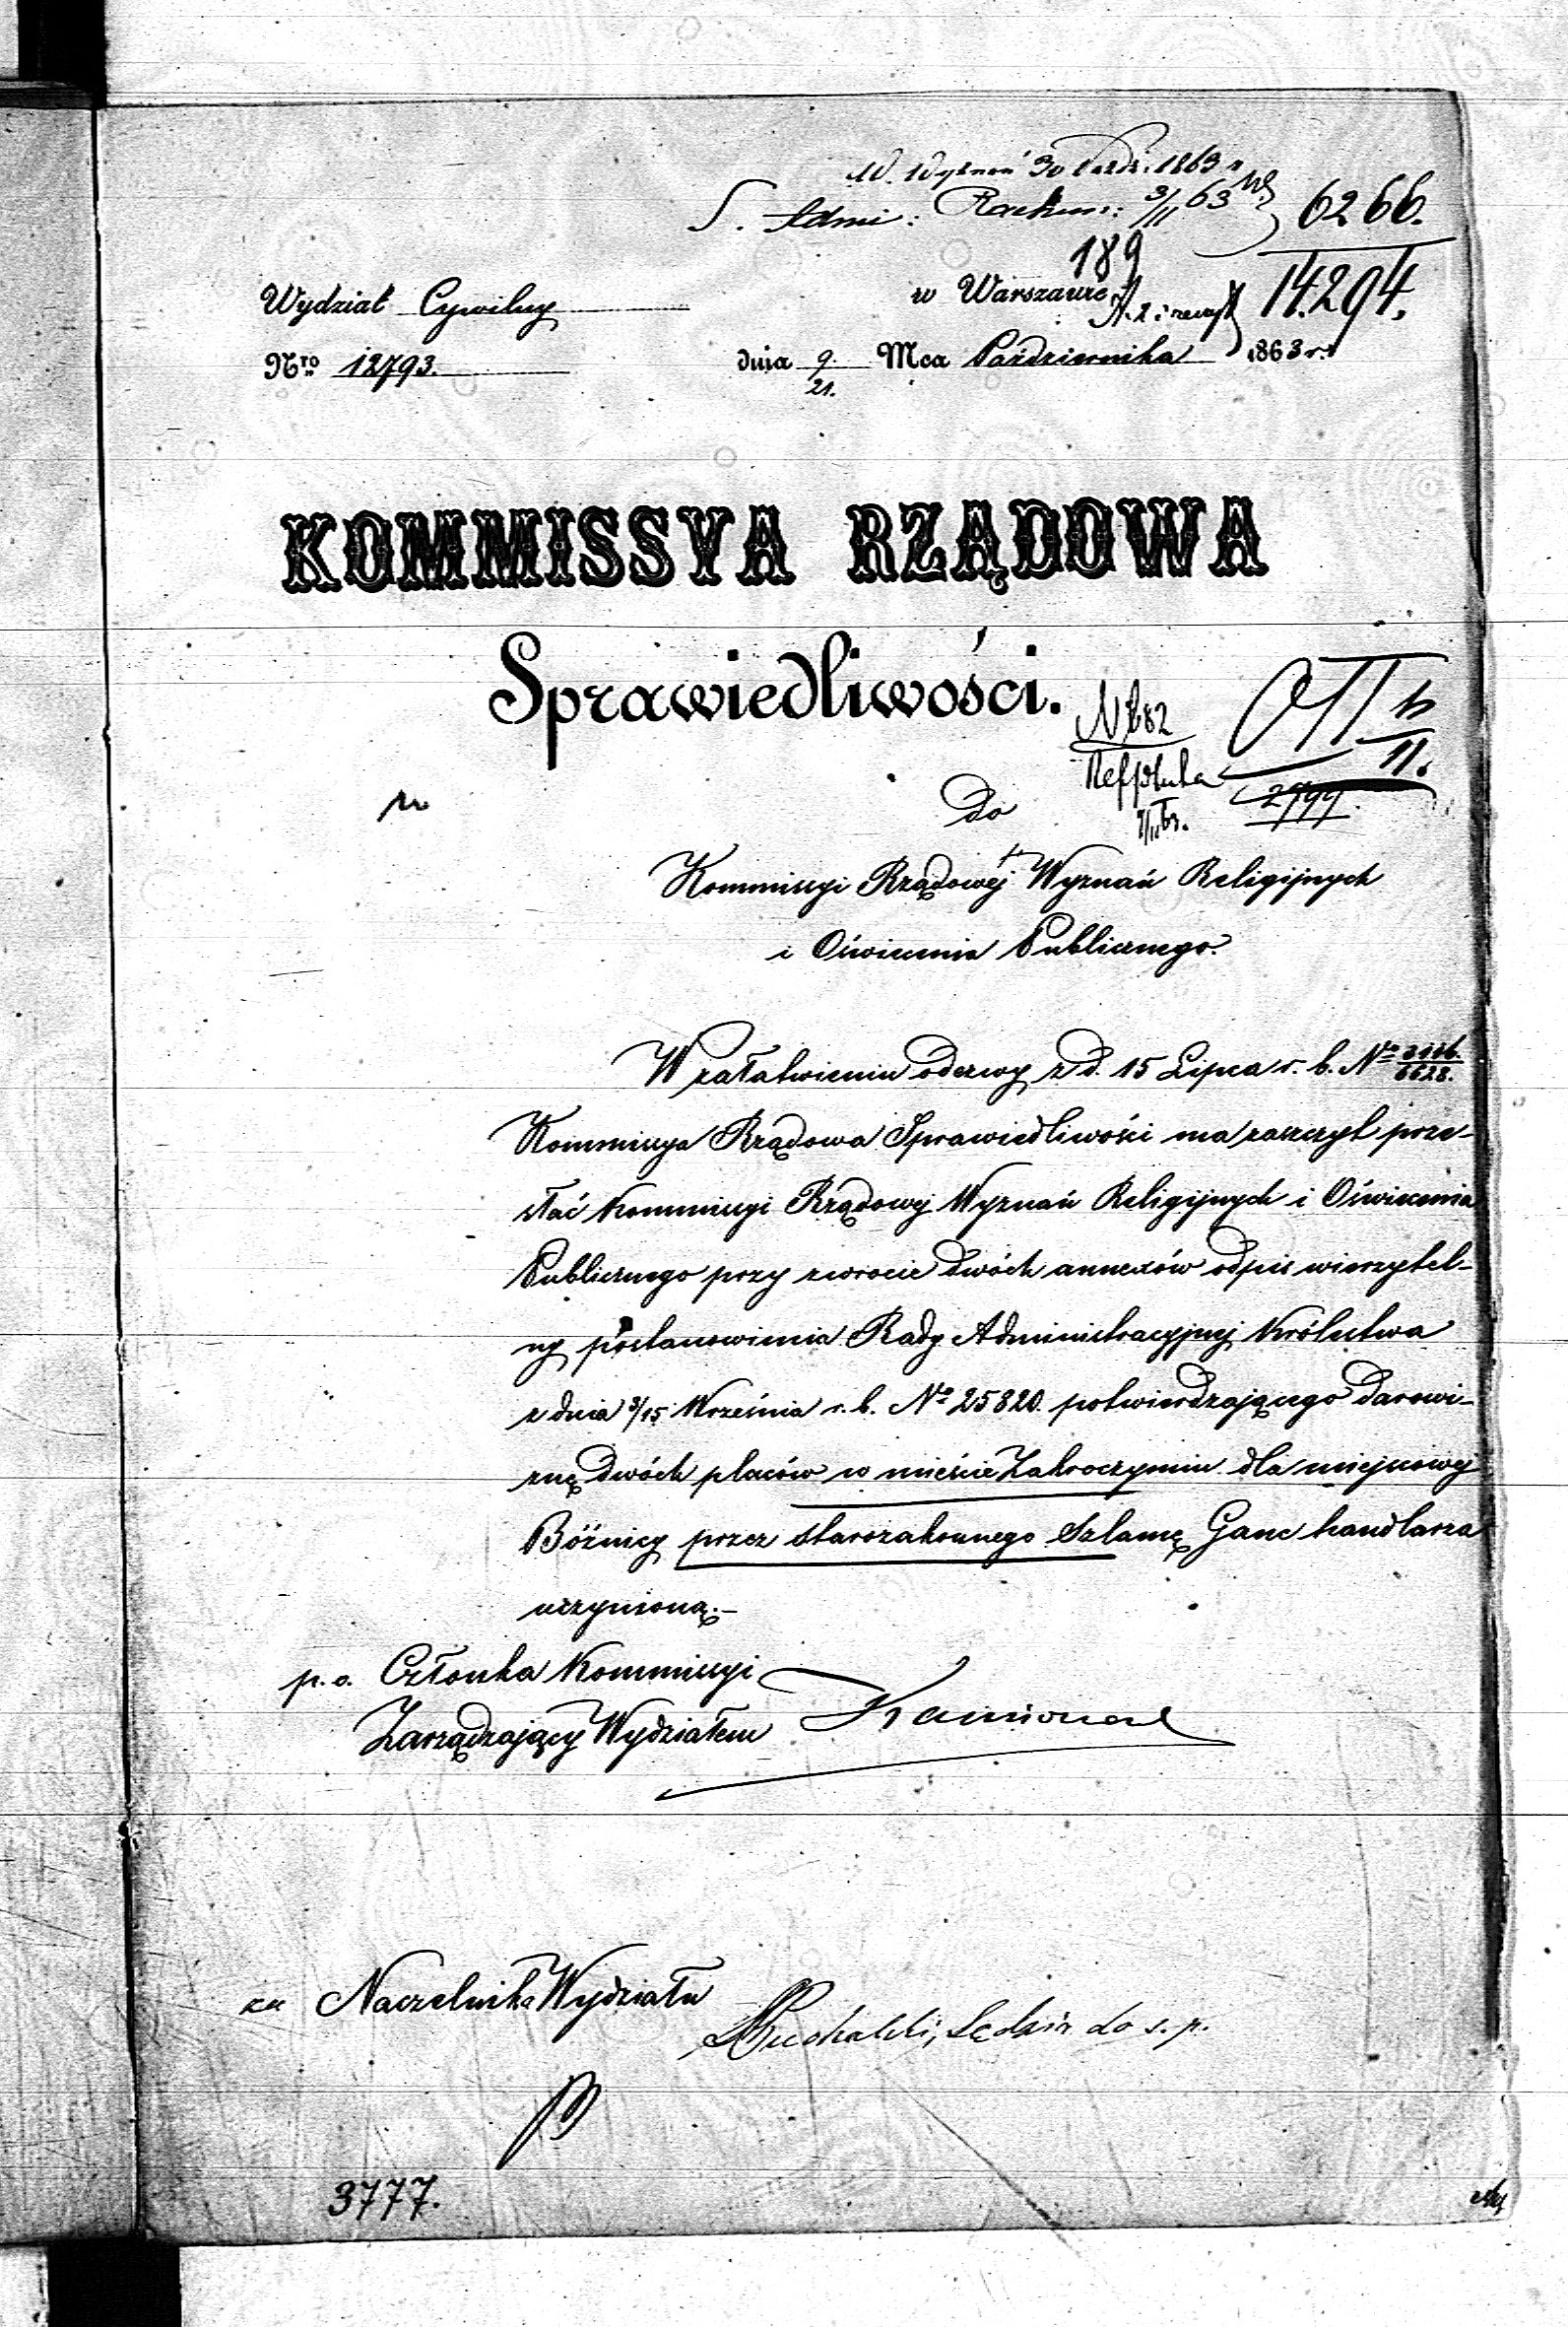 W. Wyznań 30 Paźdz. 1863 r.
S. Admi: Rachun: 3/11 63
6266.
189
14.294.
Wydział Cywilny
w Warszawie
Nro 12793.
dnia 9/21. Mca Października 1863 r.
KOMMISSYA RZĄDOWA
Sprawiedliwości.
11.
2799
do
Kommissyi Rządowéj Wyznań Religijnych
i Oświecenia Publicznego.
W załatwieniu odezwy z d. 15 Lipca r. b. No 3116./6628.
Kommissya Rządowa Sprawiedliwości ma zaszczyt prze-
słać Kommissyi Rządowej Wyznań Religijnych i Oświecenia
Publicznego przy zwrocie dwóch annexów odpis wierzytel-
ny postanowienia Rady Administracyjnej Królestwa
z dnia 3/15 Września r. b. No 25820. potwierdzającego darowi-
znę dwóch placów w mieście Zakroczymiu dla miejscowej
Bóżnicy przez starozakonnego Szlamę Ganc handlarza
uczynioną.-
p. o. Członka Kommissyi
Zarządzający Wydziałem
za Naczelnika Wydziału
Sędzia do s. p.
3777.